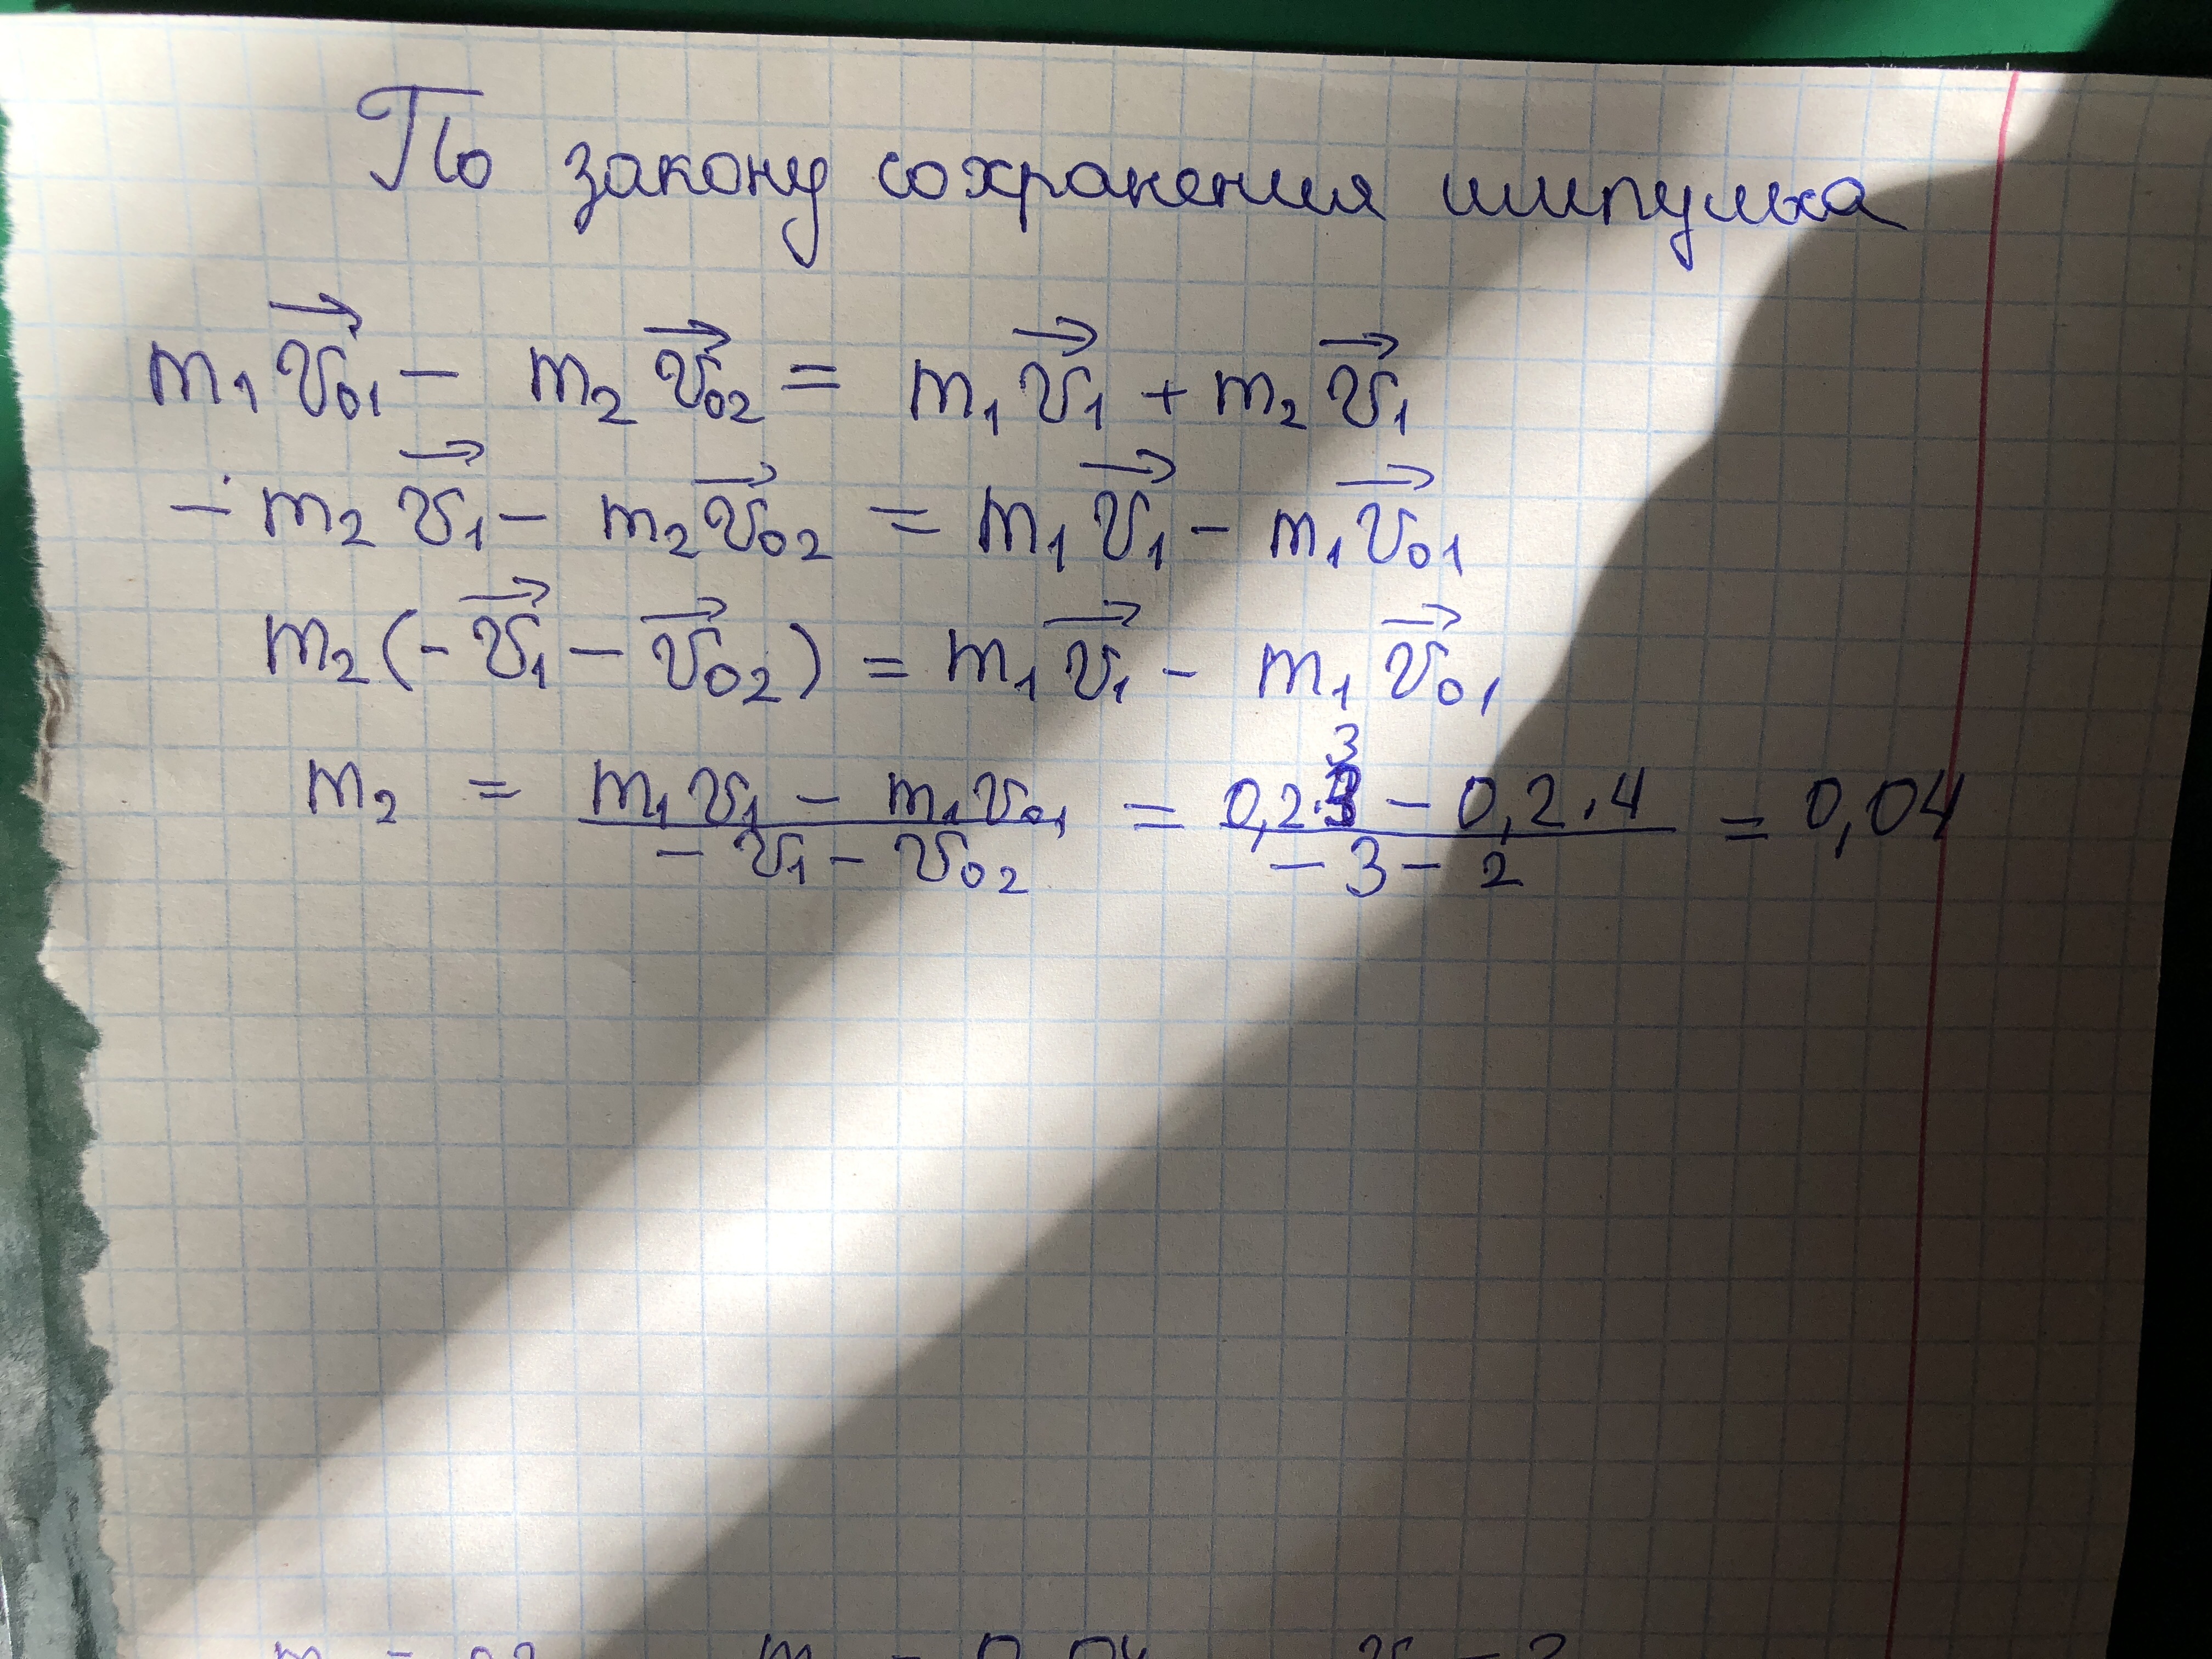 По закону сохранения импульса
m₁v⃗₀₁ − m₂v⃗₀₂ = m₁v⃗₁ + m₂v⃗₁
− m₂v⃗₁ − m₂v⃗₀₂ = m₁v⃗₁ − m₁v⃗₀₁
m₂(−v⃗₁ − v⃗₀₂) = m₁v⃗₁ − m₁v⃗₀₁
m₂ = (m₁v₁ − m₁v₀₁)/(−v₁ − v₀₂) = (0,2·3 − 0,2·4)/(−3−2) = 0,04